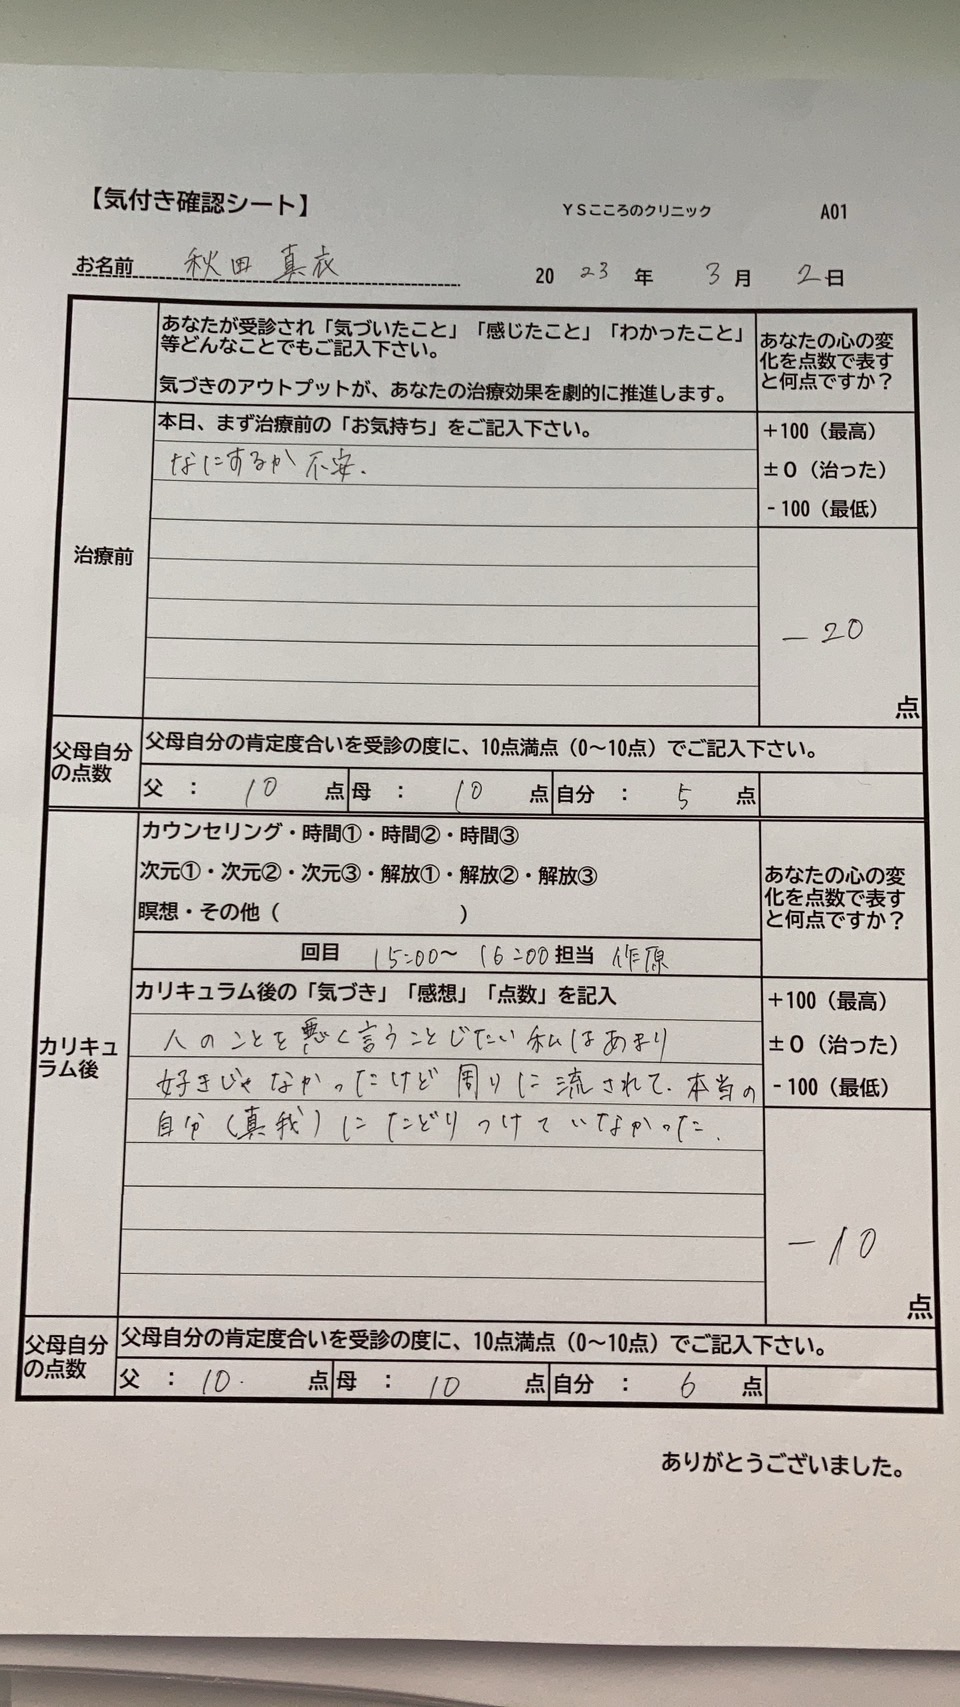 【気付き確認シート】 YSこころのクリニック A01
お名前 秋田 真衣 2023年 3月 2日
あなたが受診され「気づいたこと」「感じたこと」「わかったこと」
等どんなことでもご記入下さい。
気づきのアウトプットが、あなたの治療効果を劇的に推進します。
あなたの心の変
化を点数で表す
と何点ですか？
治療前
本日、まず治療前の「お気持ち」をご記入下さい。
なにするか不安.
+100（最高）
±0（治った）
-100（最低）
-20
点
父母自分
の点数
父母自分の肯定度合いを受診の度に、10点満点（0〜10点）でご記入下さい。
父 : 10 点 母 : 10 点 自分 : 5 点
カウンセリング・時間①・時間②・時間③
次元①・次元②・次元③・解放①・解放②・解放③
瞑想・その他（ ）
あなたの心の変
化を点数で表す
と何点ですか？
回目 15:00〜 16:00 担当 作原
カリキュ
ラム後
カリキュラム後の「気づき」「感想」「点数」を記入
人のことを悪く言うことじたい私はあまり
好きじゃなかったけど周りに流されて、本当の
自分（真我）にたどりつけていなかった.
+100（最高）
±0（治った）
-100（最低）
-10
点
父母自分
の点数
父母自分の肯定度合いを受診の度に、10点満点（0〜10点）でご記入下さい。
父 : 10. 点 母 : 10 点 自分 : 6 点
ありがとうございました。